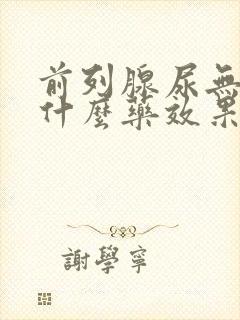 前列腺尿無
什麼藥效果
謝學寧